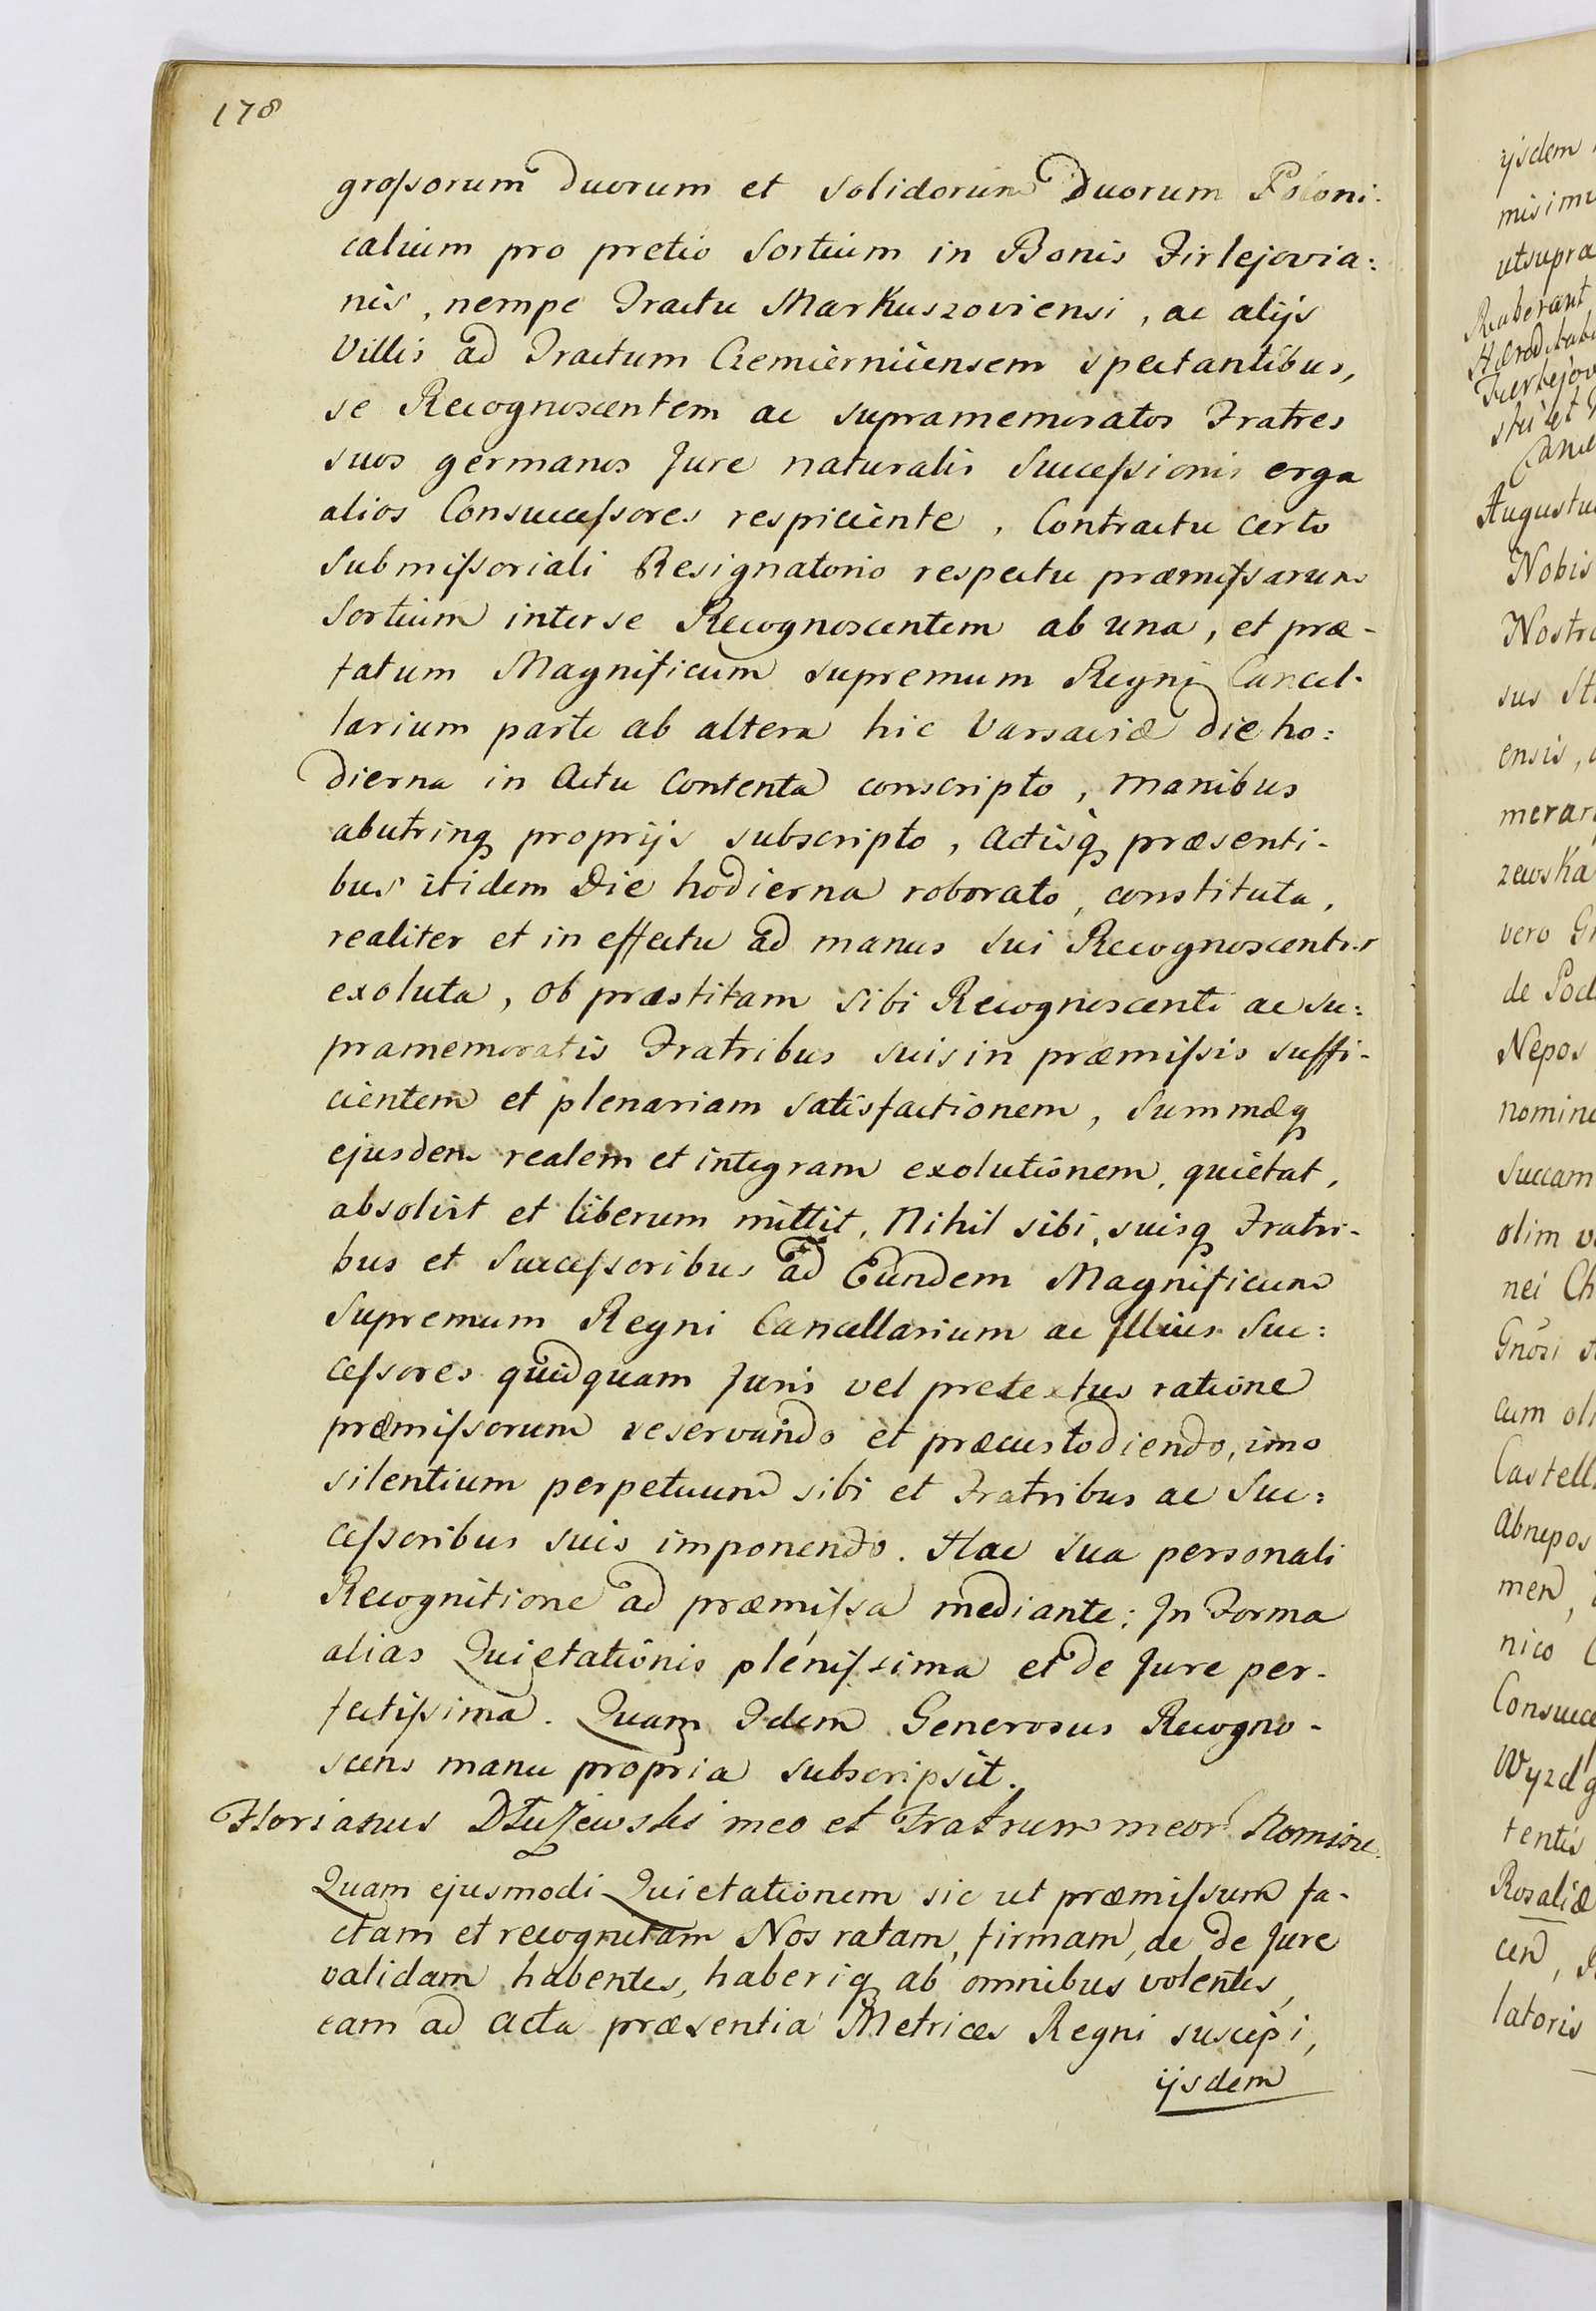 178
groſsorum Duorum et Solidorum Duorum Poloni-
calium pro pretio Sortium in Bonis Firlejovia:
nis, nempe Tractu Markuszoviensi, ac alijs
Villis ad Tractum Czemiernicensem spectantibus,
se Recognoscentem ac supramemoratos Fratres
suos germanos Jure naturalis Succeſsionis erga
alios Consucceſsores respiciente, Contractu certo
Submiſsoriali Resignatorio respectu præmiſsarum
Sortium inter se Recognoscentem ab una, et præ-
fatum Magnificum supremum Regni Cancel-
larium parte ab altera hic Varsaviæ Die ho:
dierna in Actu Contenta conscripto, manibus
abutrinq proprijs subscripto, Actisq præsenti-
bus itidem Die hodierna roborato, constituta,
realiter et in effectu ad manus sui Recognoscentis
exoluta, ob præstitam sibi Recognoscenti ac su:
pramemoratis Fratribus suis in præmiſsis suffi-
cientem et plenariam satisfactionem, Summæq
ejusdem realem et integram exolutionem, quietat,
absolvit et liberum mittit. Nihil sibi, suisq Fratri-
bus et Succeſsoribus ad Eundem Magnificum
Supremum Regni Cancellarium ac Illius Suc:
ceſsores quidquam Juris vel pretextus ratione
præmiſsorum reservando et præcustodiendo, imo
silentium perpetuum sibi et Fratribus ac Suc:
ceſsoribus suis imponendo. Hac sua personali
Recognitione ad præmiſsa mediante; In Forma
alias Quietationis pleniſsima et de Jure per-
fectiſsima. Quam Idem Generosus Recogno-
scens manu propria subscripsit.
Florianus Dłużewski meo et Fratrum meor: Nomine.
Quam ejusmodi Quietationem sic ut præmiſsum fa-
ctam et recognitam Nos ratam, firmam, ac de Jure
validam habentes, haberiq ab omnibus volentes,
eam ad Acta præsentia Metrices Regni suscipi,
ijsdem
ijsdem
misimu
utsupra
Roberant
Augustu
Nobis
Nostr
sus St
ensis,
merar
zewska
vero G
de Pod
Nepos
nomine
Succam
olim v
nei Ch
Gnosi
cum oli
Castell
Abnepos
men,
nico
Consucce
Wyzdg
tentis
Rosaliæ
cen,
latoris